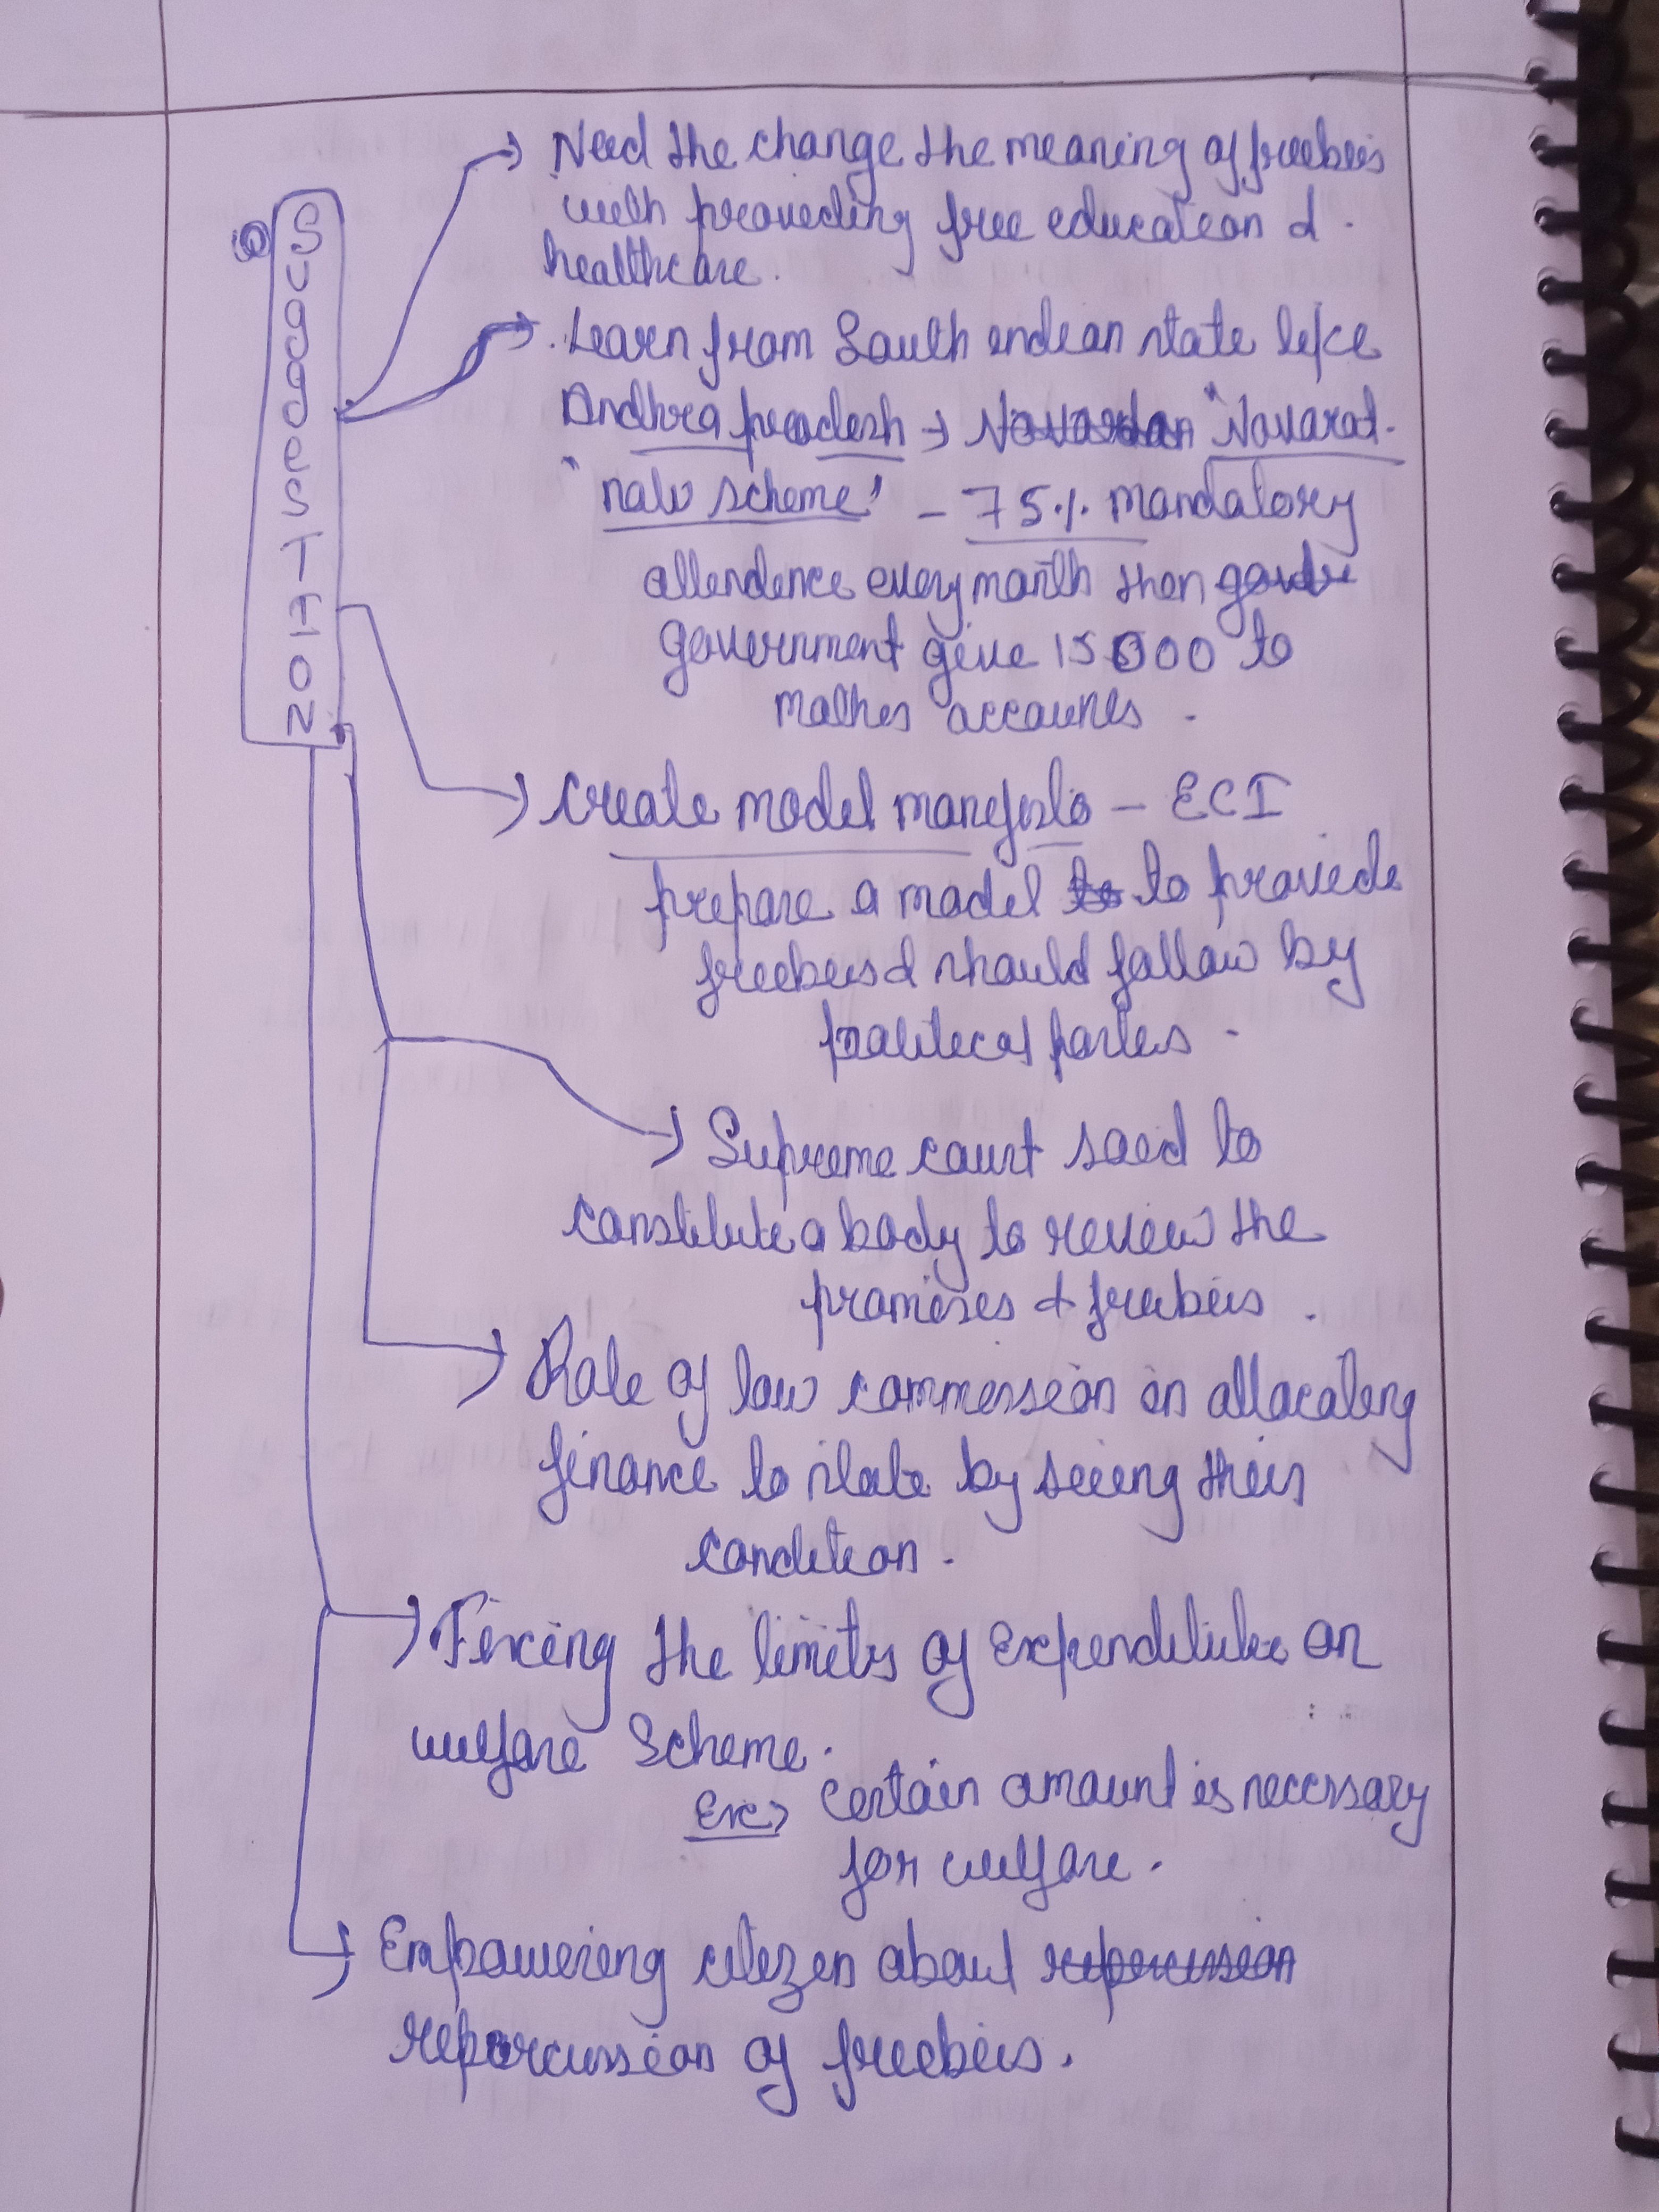 SuggesTION
Need the change the meaning of freebies
with provieding free education &
healthcare.
Learn from South indian state like
Andhra pradesh → "Navarat-
"nalu scheme" - 75% mandatory
attendence every month then
government give 15000 to
mothes accounts.
Create model manifesto - ECI
prepare a model to proviede
freebies & should follow by
political parties.
Supreme court said to
constitute a body to review the
promises & freebies.
Role of law commission in allocating
finance to state by seeing their
condition.
Fixing the limits of Expenditure on
welfare Scheme.
Ex> certain amount is necessary
for welfare.
Empowering citizen about repercussion
repercussion of freebies.